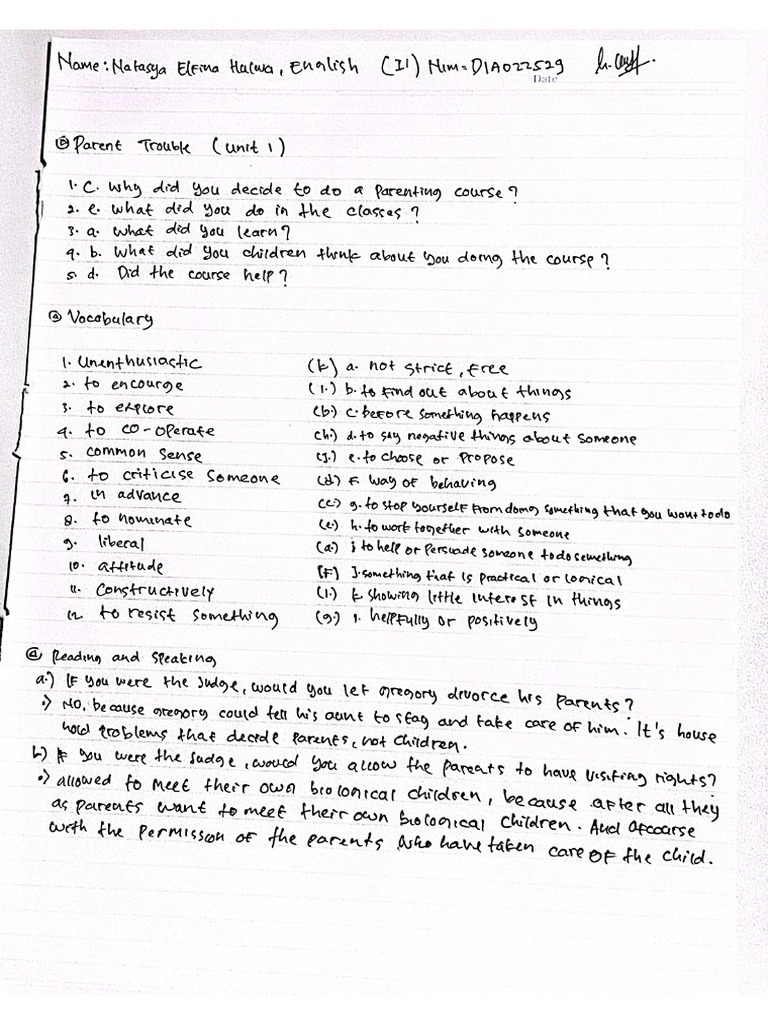 Name: Natasya Elfina Halwa, English (II) Nim = D1A022529
Date
② Parent Trouble (unit 1)
1. C. Why did you decide to do a parenting course?
2. e. what did you do in the classes?
3. a. what did you learn?
4. b. What did you children think about you doing the course?
5. d. Did the course help?
③ Vocabulary
1. Unenthusiastic (k) a. not strict, free
2. to encourge (i.) b. to find out about things
3. to explore (b.) c. before something happens
4. to co-operate (h.) d. to say negative things about someone
5. common sense (j.) e. to choose or propose
6. to criticise someone (d) f way of behaving
7. in advance (c) g. to stop yourself from doing something that you want to do
8. to nominate (e.) h. to work together with someone
9. liberal (a.) i to help or persuade someone to do something
10. attitude (F) J. something that is practical or logical
11. constructively (l.) k showing little interest in things
12. to resist something (g.) l. helpfully or positively
④ Reading and Speaking
a.) If you were the Judge, would you let gregory divorce his parents?
•) NO, because gregory could tell his aunt to stay and take care of him. It's house
hold problems that decide parents, not children.
b.) If you were the Judge, would you allow the parents to have visiting rights?
•) allowed to meet their own biological children, because after all they
as parents want to meet their own biological children. And ofcourse
with the permisson of the parents who have taken care of the child.